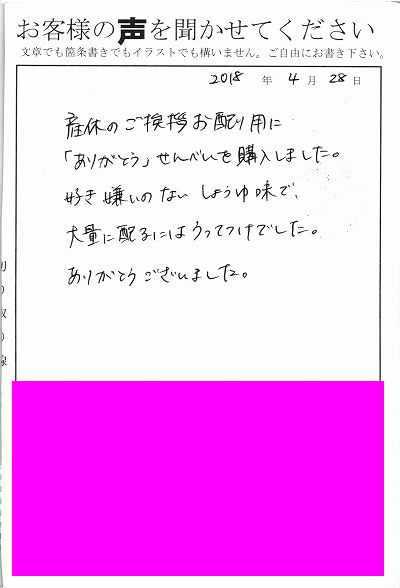 お客様の声を聞かせてください
文章でも箇条書きでもイラストでも構いません。ご自由にお書き下さい。
2018 年 4 月 28 日
産休のご挨拶お配り用に
「ありがとう」せんべいを購入しました。
好き嫌いのないしょうゆ味で、
大量に配るにはうってつけでした。
ありがとうございました。
切り取り線